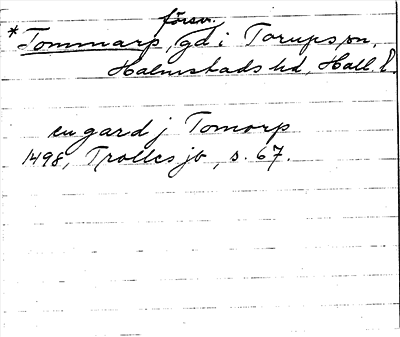 försv.
*Tommarp, gd i Torups sn,
Halmstads hd, Hall. l.
en gard j Tomorp
1498, Trolles jb, s. 67.